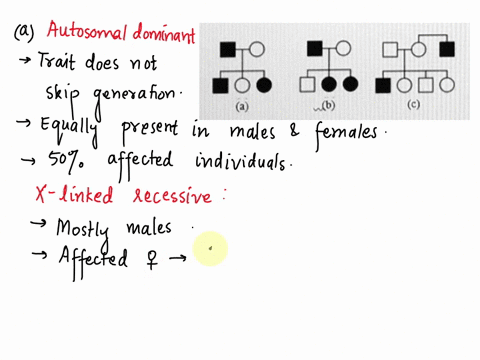 (a) Autosomal dominant
→ Trait does not
skip generation.
→ Equally present in males & females.
→ 50% affected individuals.
X-linked recessive :
→ Mostly males .
→ Affected ♀ →
(a) (b) (c)